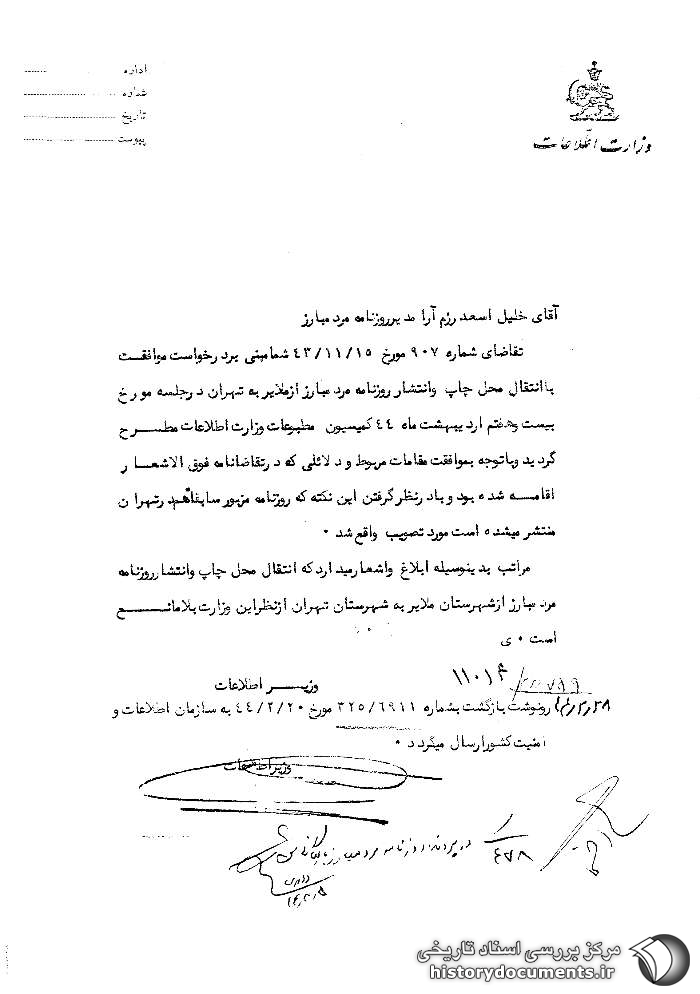 اداره
شماره
تاریخ
پیوست
وزارت اطلاعات
آقای خلیل اسعد رزم آرا مدیر روزنامه مرد مبارز
تقاضای شماره ۹۰۷ مورخ ۴۳/۱۱/۱۵ شما مبنی بر درخواست موافقت
با انتقال محل چاپ وانتشار روزنامه مرد مبارز از ملایر به تهران در جلسه مورخ
بیست وهفتم اردیبهشت ماه ۴۴ کمیسیون مطبوعات وزارت اطلاعات مطـــرح
گردید وباتوجه بموافقت مقامات مربوط و دلائلی که در تقاضانامه فوق الاشعار
اقامه شده بود و بادرنظر گرفتن این نکته که روزنامه مزبور سابقاً هم درتهران
منتشر میشده است مورد تصویب واقع شد ۰
مراتب بدینوسیله ابلاغ واشعار میدارد که انتقال محل چاپ وانتشار روزنامه
مرد مبارز از شهرستان ملایر به شهرستان تهران ازنظر این وزارت بلامانـــع
است ۰ ی
وزیـــر اطلاعات
رونوشت بازگشت بشماره ۳۲۵/۶۹۱۱ مورخ ۴۴/۲/۲۰ به سازمان اطلاعات و
امنیت کشور ارسال میگردد ۰
وزیر اطلاعات
در پرونده روزنامه مرد مبارز بایگانی
۴۷۸
مرکز بررسی اسناد تاریخی
historydocuments.ir